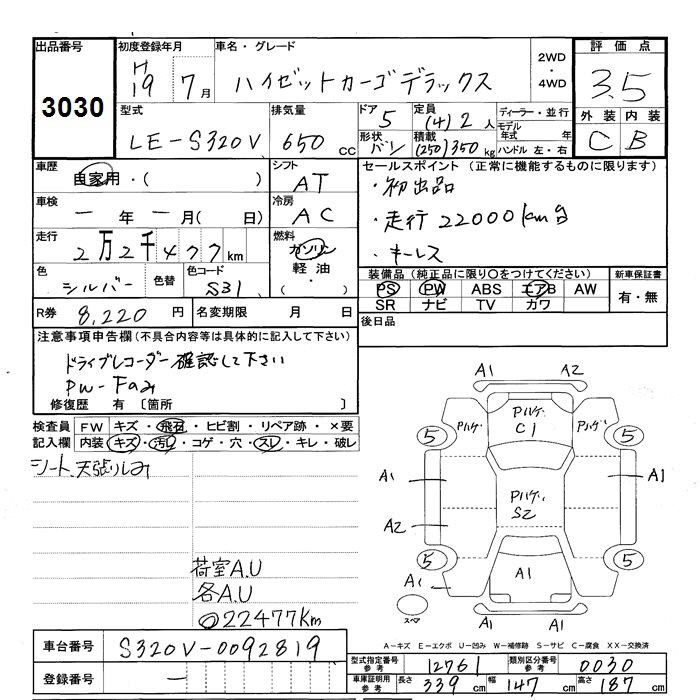 出品番号
3030
初度登録年月
H
19 7月
車名・グレード
ハイゼットカーゴ デラックス
2WD
・
4WD
評価点
3.5
外装 内装
C B
型式
LE-S320V
排気量
650 cc
ドア
5
形状
バン
定員
(4) 2 人
積載
(250) 350 kg
ディーラー・並行
モデル年式 年
ハンドル 左・右
車歴
自家用・( )
シフト
AT
車検
一 年 一 月( 日)
冷房
AC
走行
2万2千477 km
燃料
ガソリン
軽油
・
( )
色
シルバー
色替
色コード
S31
R券
8,220 円
名変期限 月 日
セールスポイント (正常に機能するものに限ります)
・初出品
・走行22000km台
・キーレス
装備品(純正品に限り○をつけてください)
PS PW ABS エアB AW
SR ナビ TV カワ
新車保証書
有・無
後日品
注意事項申告欄(不具合内容等は具体的に記入して下さい)
ドライブレコーダー確認して下さい
PW-Fのみ
修復歴 有 〔箇所 〕
検査員記入欄
FW キズ・飛石・ヒビ割・リペア跡・×要
内装 キズ・汚レ・コゲ・穴・スレ・キレ・破レ
シート、天張りしみ
荷室A.U
各A.U
◎22477Km
A1 A2
Pハゲ Pハゲ. C1 Pハゲ
5 5
A1 A1
Pハゲ. S2
A2
5 5
A1 A1
スペア
A-キズ E-エクボ U-凹み W-補修跡 S-サビ C-腐食 XX-交換済
車台番号
S320V-0092819
登録番号
一
型式指定番号
参考
12761
類別区分番号
参考
0030
車庫証明用
参考
長さ 339 cm 幅 147 cm 高さ 187 cm